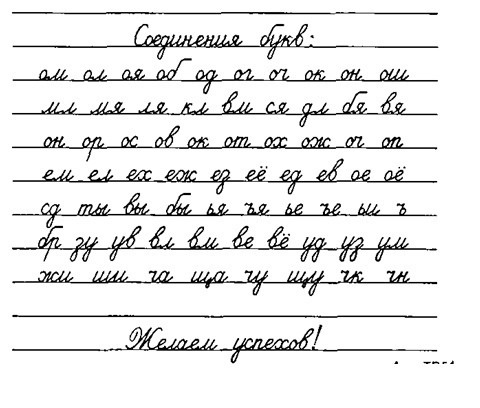 Соединения букв:
ом ол оя об од ог оч ок он ош
мл мя ля кл вм ся дл бя вя
он ор ос ов ок от ох ож оч оп
ем ел ех еж ез её ед ев ое оё
сд ты вы бы ья ъя ье ъе ьи ъ
бр зу ув вл вм ве вё уд уз ум
жи ши ча ща чу щу чк чн
Желаем успехов!